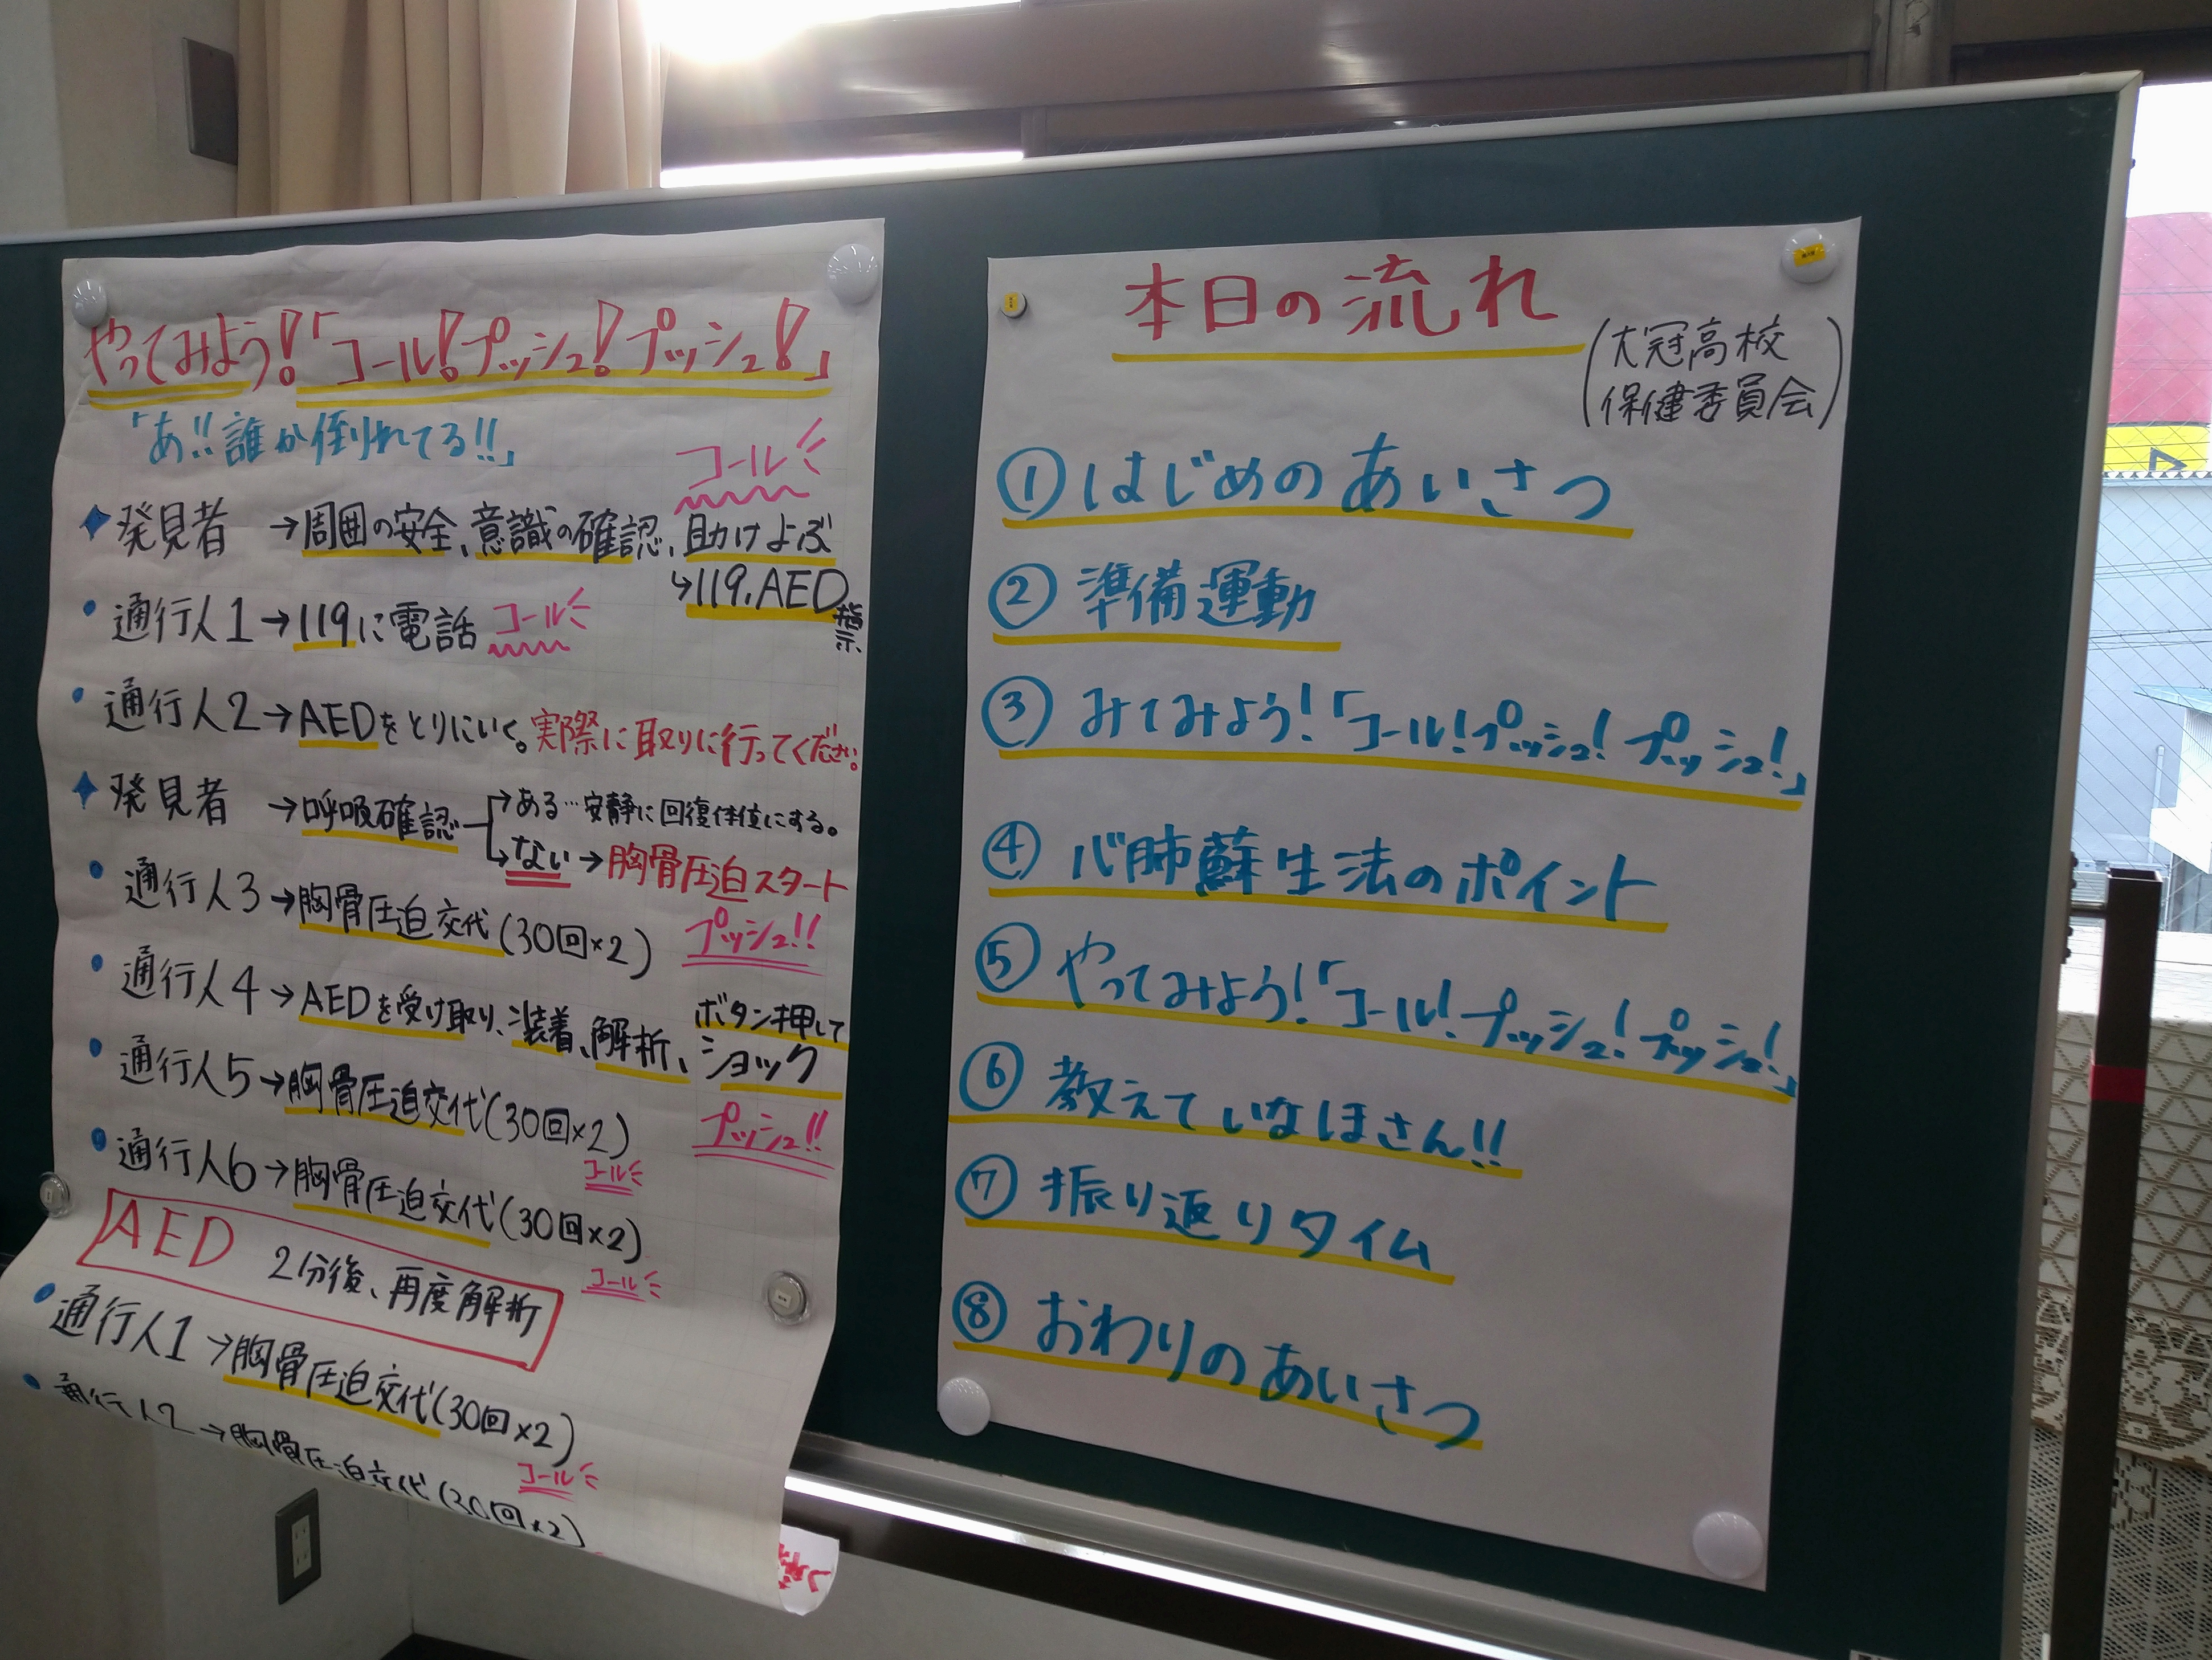 やってみよう!「コール!プッシュ!プッシュ!」
「あ!!誰か倒れてる!!」
コール
発見者 →周囲の安全、意識の確認、助けよぶ
↳119.AED指示
通行人1→119に電話 コール
通行人2→AEDをとりにいく。実際に取りに行ってください。
発見者 →呼吸確認→ある…安静に回復体位にする。
→ない→胸骨圧迫スタート
通行人3→胸骨圧迫交代(30回×2) プッシュ!!
通行人4→AEDを受け取り、装着、解析、ボタン押して
ショック
通行人5→胸骨圧迫交代(30回×2) プッシュ!!
コール
通行人6→胸骨圧迫交代(30回×2)
コール
AED 2分後、再度解析
通行人1→胸骨圧迫交代(30回×2)
コール
通行人2→胸骨圧迫交代(30回×2)
本日の流れ
(大冠高校
保健委員会)
①はじめのあいさつ
②準備運動
③みてみよう!「コール!プッシュ!プッシュ!」
④心肺蘇生法のポイント
⑤やってみよう!「コール!プッシュ!プッシュ!」
⑥教えていなほさん!!
⑦振り返りタイム
⑧おわりのあいさつ